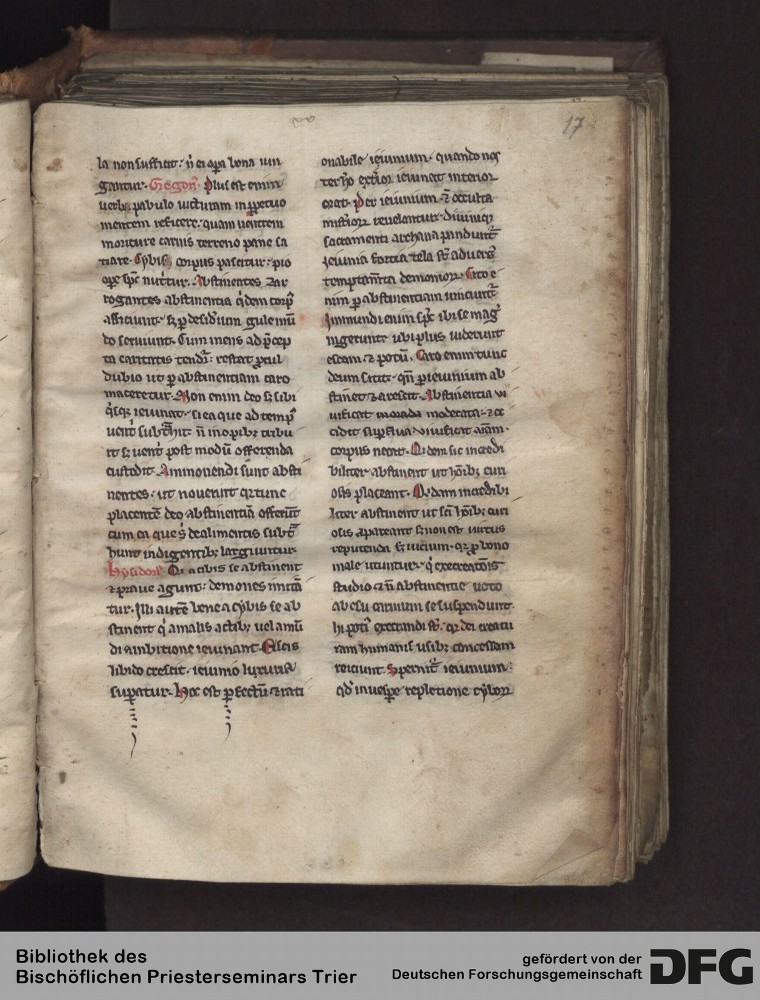 17
la non sufficit: nͥ ei opera bona iun
gantur. Gregoriꝰ. Plus est enim
uerbi pabulo uicturam in ppetuo
mentem reficere: quam uentrem
moriture carnis terreno pane sa
tiare. Cybis corpus pascitur: pio
ope spc nutͥtur. Abstinentes ⁊ar
rogantes abstinentia qͥdem corpꝰ
afficiunt: sꝫ p desideͥum gule mū
do seruiunt. Cum mens ad pͥcep
ta caritatis tendit: restat pcul
dubio ut p abstinentiam caro
maceretur. Non enim deo sꝫ sibi
qͥsqꝫ ieiunat: si ea que ad tempꝰ
uentͥ subtͣhit: nͥ inopibꝫ tribu
it sꝫ uentͥ post modū offerenda
custodit. Ammonendi sunt absti
nentes: ut nouerint qꝛ tunc
placentē deo abstinentiā offerūt
cum ea que sͥ de alimentis subtͣ
hunt indigentibꝫ largiuntur.
Hysidorꝰ. Qui a cibis se abstinent
⁊ praue agunt: demones imitā
tur. Illi autē bene a cybis se ab
stinent qͥ a malis actibꝫ uel a mū
di ambitione ieiunant. Escis
libido crescit. ieiunio luxuria
supatur. Hoc est pfectū ⁊ rati
onabile ieiunium. quando nos
ter hͦo exterior ieiunat interior
orat. Per ieiunium ⁊ occulta
misterioꝝ reuelantur. diuiniqꝫ
sacramenti archana pandunt̄
ieiunia fortia tela st̄ aduersꝰ
temptam̄ta demonioꝝ. Cito e
nim p abstinentiam uincunt̄
Immundi enim spc ibi se magͥ
ingerunt: ubi plus uiderint
escam ⁊ potū. Caro enim tunc
deum sitit. qn̄ p ieiunium ab
stinet ⁊ arescit. Abstinentia ui
uificat moderata ⁊ oc
cidit supflua uiuificat aīam.
corpus necat. Qͥdam sic incredi
biliter abstinent ut hōibꝫ curi
osis placeant. Qͥdam incredibi
liter abstinent ut sc̄i hōibꝫ curi
osis appareant sꝫ non est uirtus
reputenda sꝫ uicium. qꝛ p bono
male utuntur. qͥ execrationis
studio ⁊ n̄ abstinentie uoto
ab esu carnium se suspendunt.
hi potiꝰ execrandi st̄. qꝛ dei creatu
ram humanis usibꝫ concessam
reiciunt. Spernit̄ ieiunium:
qd in uespe repletione cyboꝝ
Bibliothek des
Bischöflichen Priesterseminars Trier
gefördert von der
Deutschen Forschungsgemeinschaft
DFG